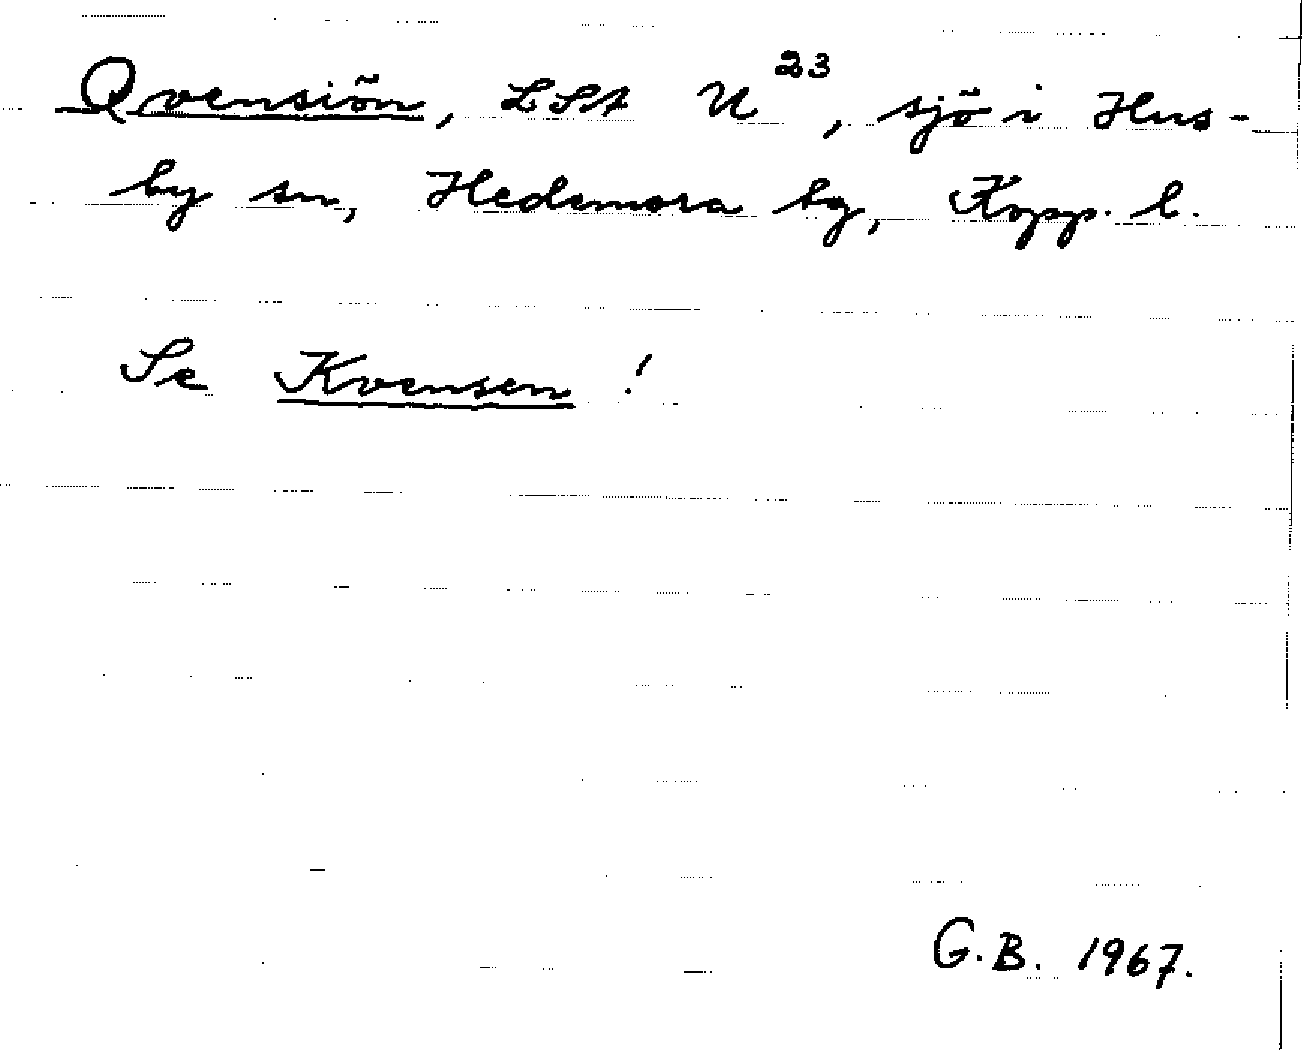 Qvensiön, LSA U²³, sjö i Hus-
by sn, Hedemora tg, Kopp. l.
Se Kvensen !
G.B. 1967.